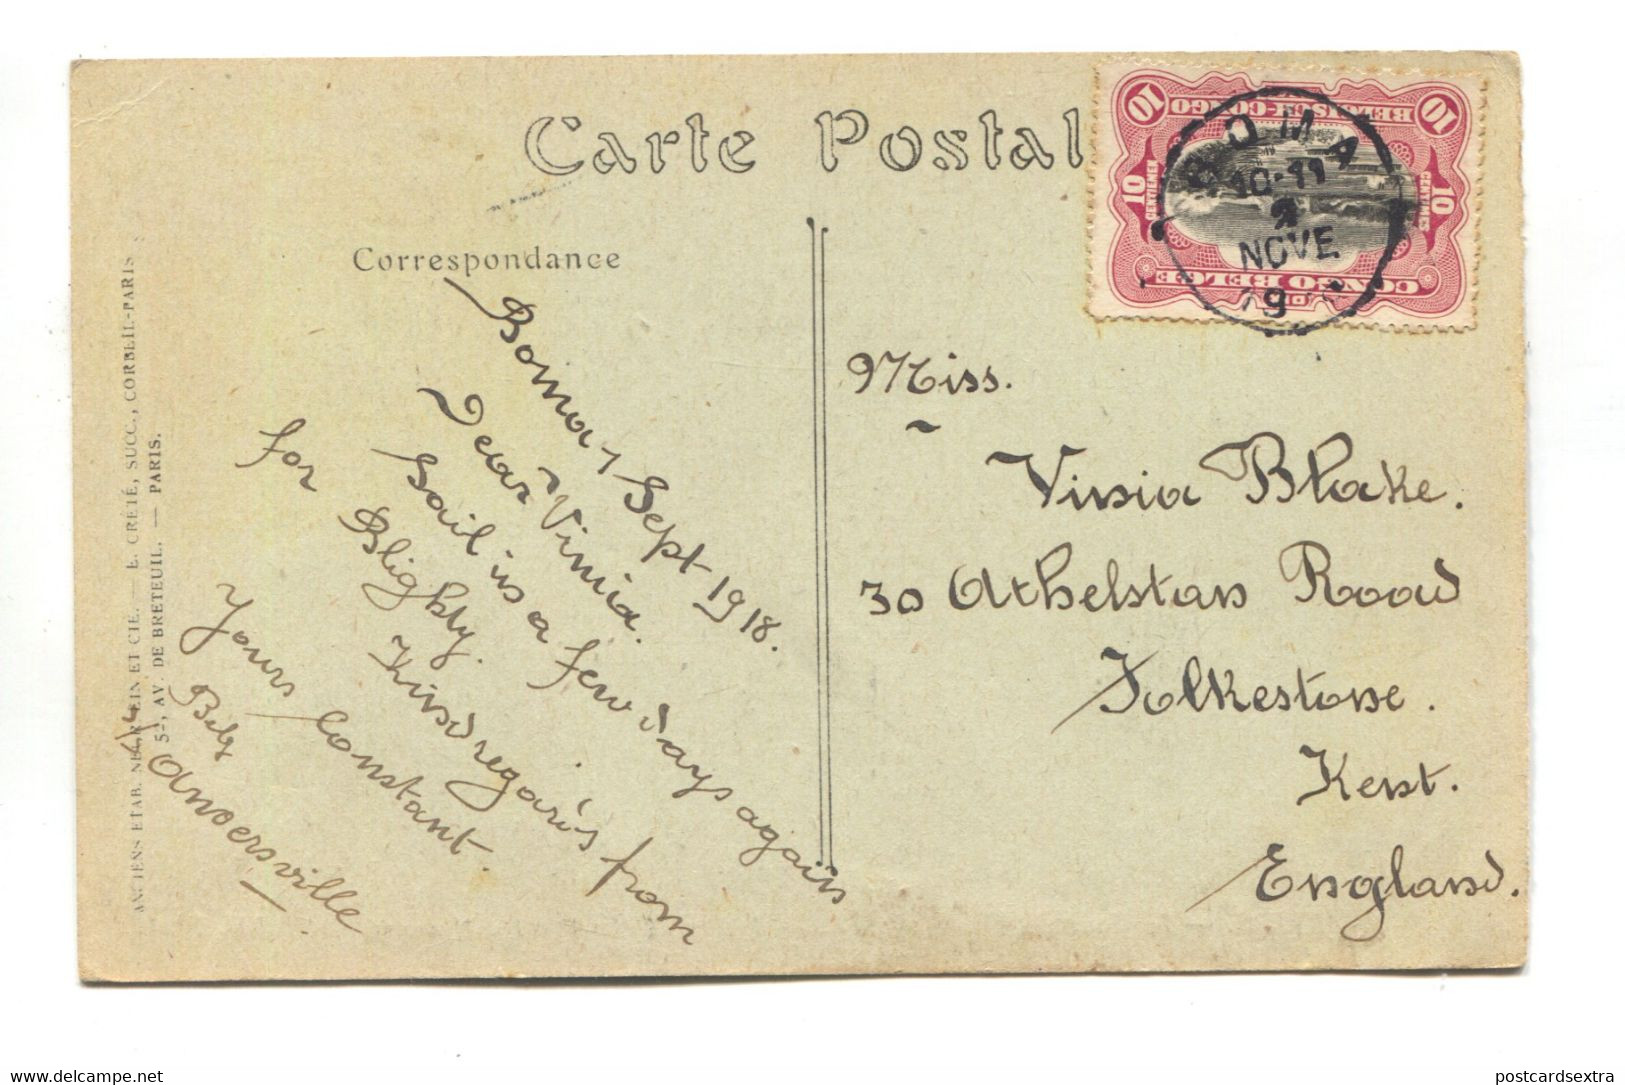 Carte Postale
Correspondance
Boma, Sept 1918.
Dear Vinnia.
Sail in a few days again
for Blighty.
Kind regards from
Yours Constant.
Anversville
ANCIENS ETAB. NEURDEIN ET CIE. — E. CRÉTÉ, SUCC., CORBEIL-PARIS
52, AV. DE BRETEUIL. — PARIS.
BELGISCH-CONGO
10
10
10 CENTIEMEN
10 CENTIMES
CONGO BELGE
BOMA
10-11
NOVE
19
Miss.
Vinnia Blake.
30 Athelstan Road
Folkestone.
Kent.
England.
www.delcampe.net
postcardsextra